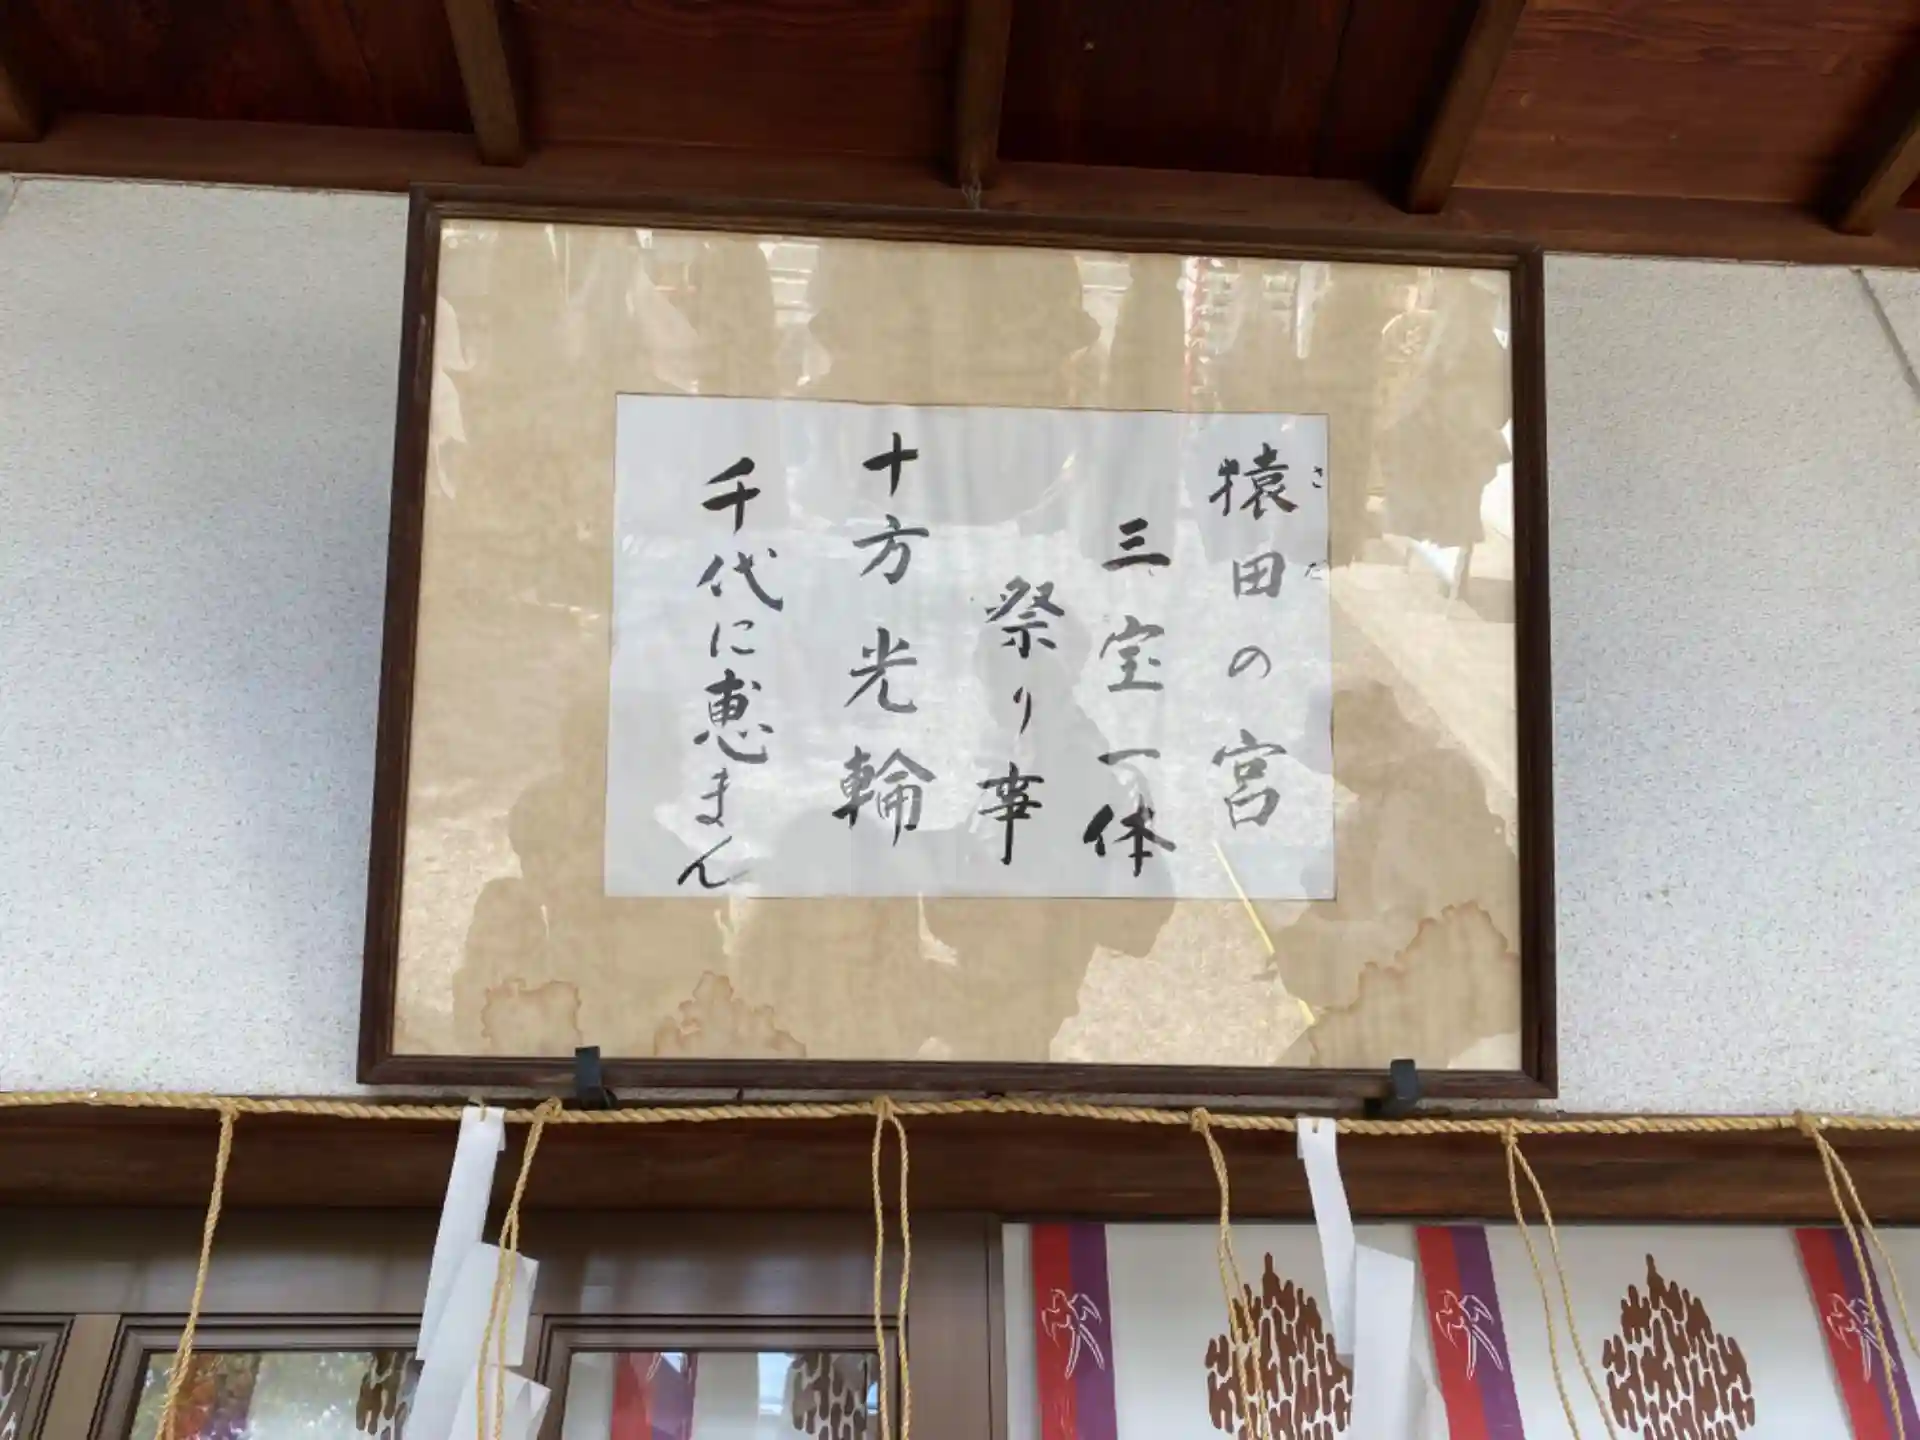 猿田の宮
さだ
三宝一体
祭り幸
十方光輪
千代に恵まん